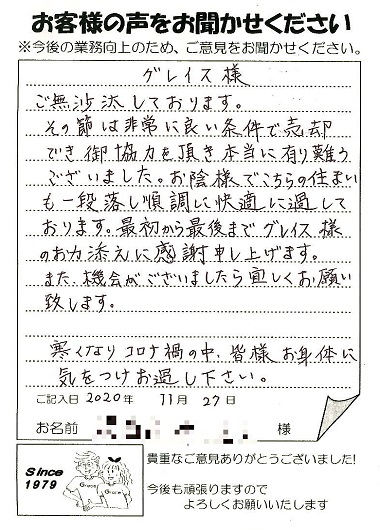 お客様の声をお聞かせください
※今後の業務向上のため、ご意見をお聞かせください。
グレイス様
ご無沙汰しております。
その節は非常に良い条件で売却
でき御協力を頂き本当に有り難う
ございました。お陰様でこちらの住まい
も一段落し順調に快適に過して
おります。最初から最後までグレイス様
のお力添えに感謝申し上げます。
また、機会がございましたら宜しくお願い
致します。
寒くなりコロナ禍の中、皆様お身体に
気をつけお過し下さい。
ご記入日 2020年 11月 27日
お名前 様
Since
1979
Grace
Grace
貴重なご意見ありがとうございました!
今後も頑張りますので
よろしくお願いいたします